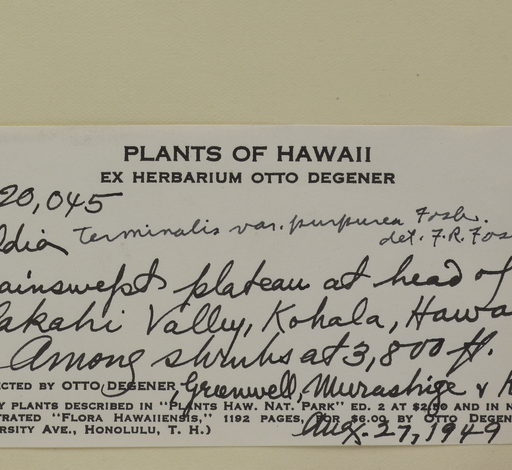 PLANTS OF HAWAII
EX HERBARIUM OTTO DEGENER
20,045
Terminalis var. purpurea Fosb.
det. F.R. Fos
ainswept plateau at head of
akahi Valley, Kohala, Hawa
Among shrubs at 3,800 ft.
ECTED BY OTTO DEGENER, Greenwell, Murashige &
Y PLANTS DESCRIBED IN "PLANTS HAW. NAT. PARK" ED. 2 AT $2.50 AND IN N
TRATED "FLORA HAWAIIENSIS," 1192 PAGES, FOR $6.00 BY OTTO DEGEN
RSITY AVE., HONOLULU, T. H.)
Aug. 27, 1949